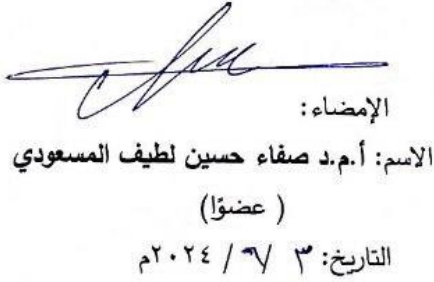 الإمضاء:
الاسم: أ.م.د صفاء حسين لطيف المسعودي
( عضوًا)
التاريخ: ٣ / / ٢٠٢٤م